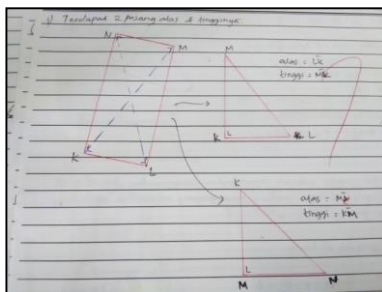 1) Terdapat 2 pasang alas & tingginya.
N
M
K
L
M
K
L
L
alas = LK
tinggi = MK
K
M
L
N
alas = MN
tinggi = KM